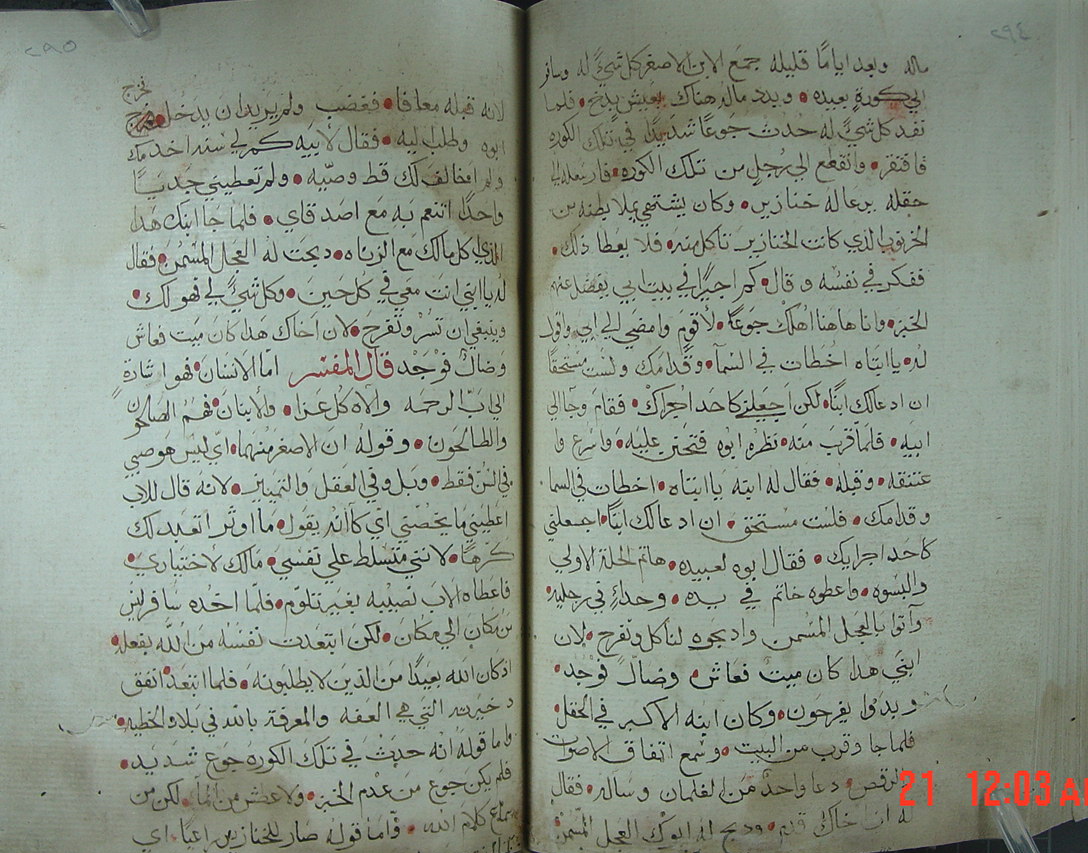 ٢٩٤
ماله وبعد اياما قليله جمع الابن الاصغر كل شيء له وسافر
الي كورة بعيده ٠ وبدد ماله هناك بعيش بدخ ٠ فلما
نفد كل شيء له حدث جوعا شديدا في تلك الكوره
فافتقر ٠ وانقطع الي رجل من تلك الكوره ٠ فارسله الي
حقله يرعا له خنازير ٠ وكان يشتهي يملا بطنه من
الخرنوب الذي كانت الخنازير تاكل منه ٠ فلا يعطا ذلك ٠
ففكر في نفسه وقال ٠ كم اجيرا في بيت ابي يفضل عنهم
الخبز ٠ وانا هاهنا اهلك جوعا ٠ لاقوم وامضي الي ابي واقول
له ٠ يا ابتاه اخطات في السما ٠ وقدامك ولست مستحقا
ان ادعا لك ابنا ٠ لكن اجعلني كاحد اجراك ٠ فقام وجا الي
ابيه ٠ فلما قرب منه ٠ نظره ابوه فتحنن عليه ٠ واسرع وا
عتنقه ٠ وقبله ٠ فقال له ابنه يا ابتاه ٠ اخطات في السما
وقدامك ٠ فلست مستحق ٠ ان ادعا لك ابنا ٠ اجعلني
كاحد اجرايك ٠ فقال ابوه لعبيده ٠ هاتم الحلة الاولي
والبسوه ٠ واعطوه خاتم في يده ٠ وحداء في رجليه ٠
وآتوا بالعجل المسمن وادبحوه لناكل ونفرح ٠ لان
ابني هدا كان ميت فعاش ٠ وضالا فوجد ٠
وبدوا يفرحون ٠ وكان ابنه الاكبر في الحقل ٠
فلما جا وقرب من البيت ٠ وسمع اتفاق الاصوات
والرقص ٠ دعا واحدا من الغلمان وساله ٠ فقال
له ان اخاك قدم ٠ ودبح له ابوك العجل المسمن
٢٩٥
لانه قبله معافا ٠ فغضب ولم يريد ان يدخل ٠ فخرج
ابوه وطلب ليه ٠ فقال لابيه كم لي سنه اخدمك
ولم اخالف لك قط وصيه ٠ ولم تعطيني جديا
واحدا اتنعم به مع اصدقاي ٠ فلما جا ابنك هدا
الذي اكل مالك مع الزناه ٠ دبحت له العجل المسمن ٠ فقال
له يا ابني انت معي في كل حين ٠ وكل شيء لي فهو لك ٠
وينبغي ان تسر وتفرح ٠ لان اخاك هدا كان ميت فعاش
وضال فوجد قال المفسر اما الانسان ٠ فهو اشارة
الي اب الرحمه والاه كل عزا ٠ والابنان ٠ فهم الصالحون
والطالحون ٠ وقوله ان الاصغر منهما ٠ اي ليس هو صبي
في السن فقط ٠ وبل وفي العقل والتمييز ٠ لانه قال للاب
اعطيني ما يخصني اي كانه يقول ٠ ما اوثر اتعبد لك
كرها ٠ لانني متسلط علي نفسي ٠ مالك لاختياري ٠
فاعطاه الاب نصيبه بغير تلوم ٠ فلما اخده سافر ليس
من مكان الي مكان ٠ لكن ابتعدت نفسه من الله بفعله ٠
اد كان الله بعيدا من الدين لا يطلبونه ٠ فلما ابتعد انفق
دخيرته التي هي العفه والمعرفة بالله في بلاد الخطيه ٠
واما قوله انه حدث في تلك الكوره جوع شديد ٠
فلم يكن جوع من عدم الخبز ٠ ولا عطش من الما ٠ لكن من
سماع كلام الله ٠ واما قوله صار للخنازير راعيا ٠ اي
21 12:03